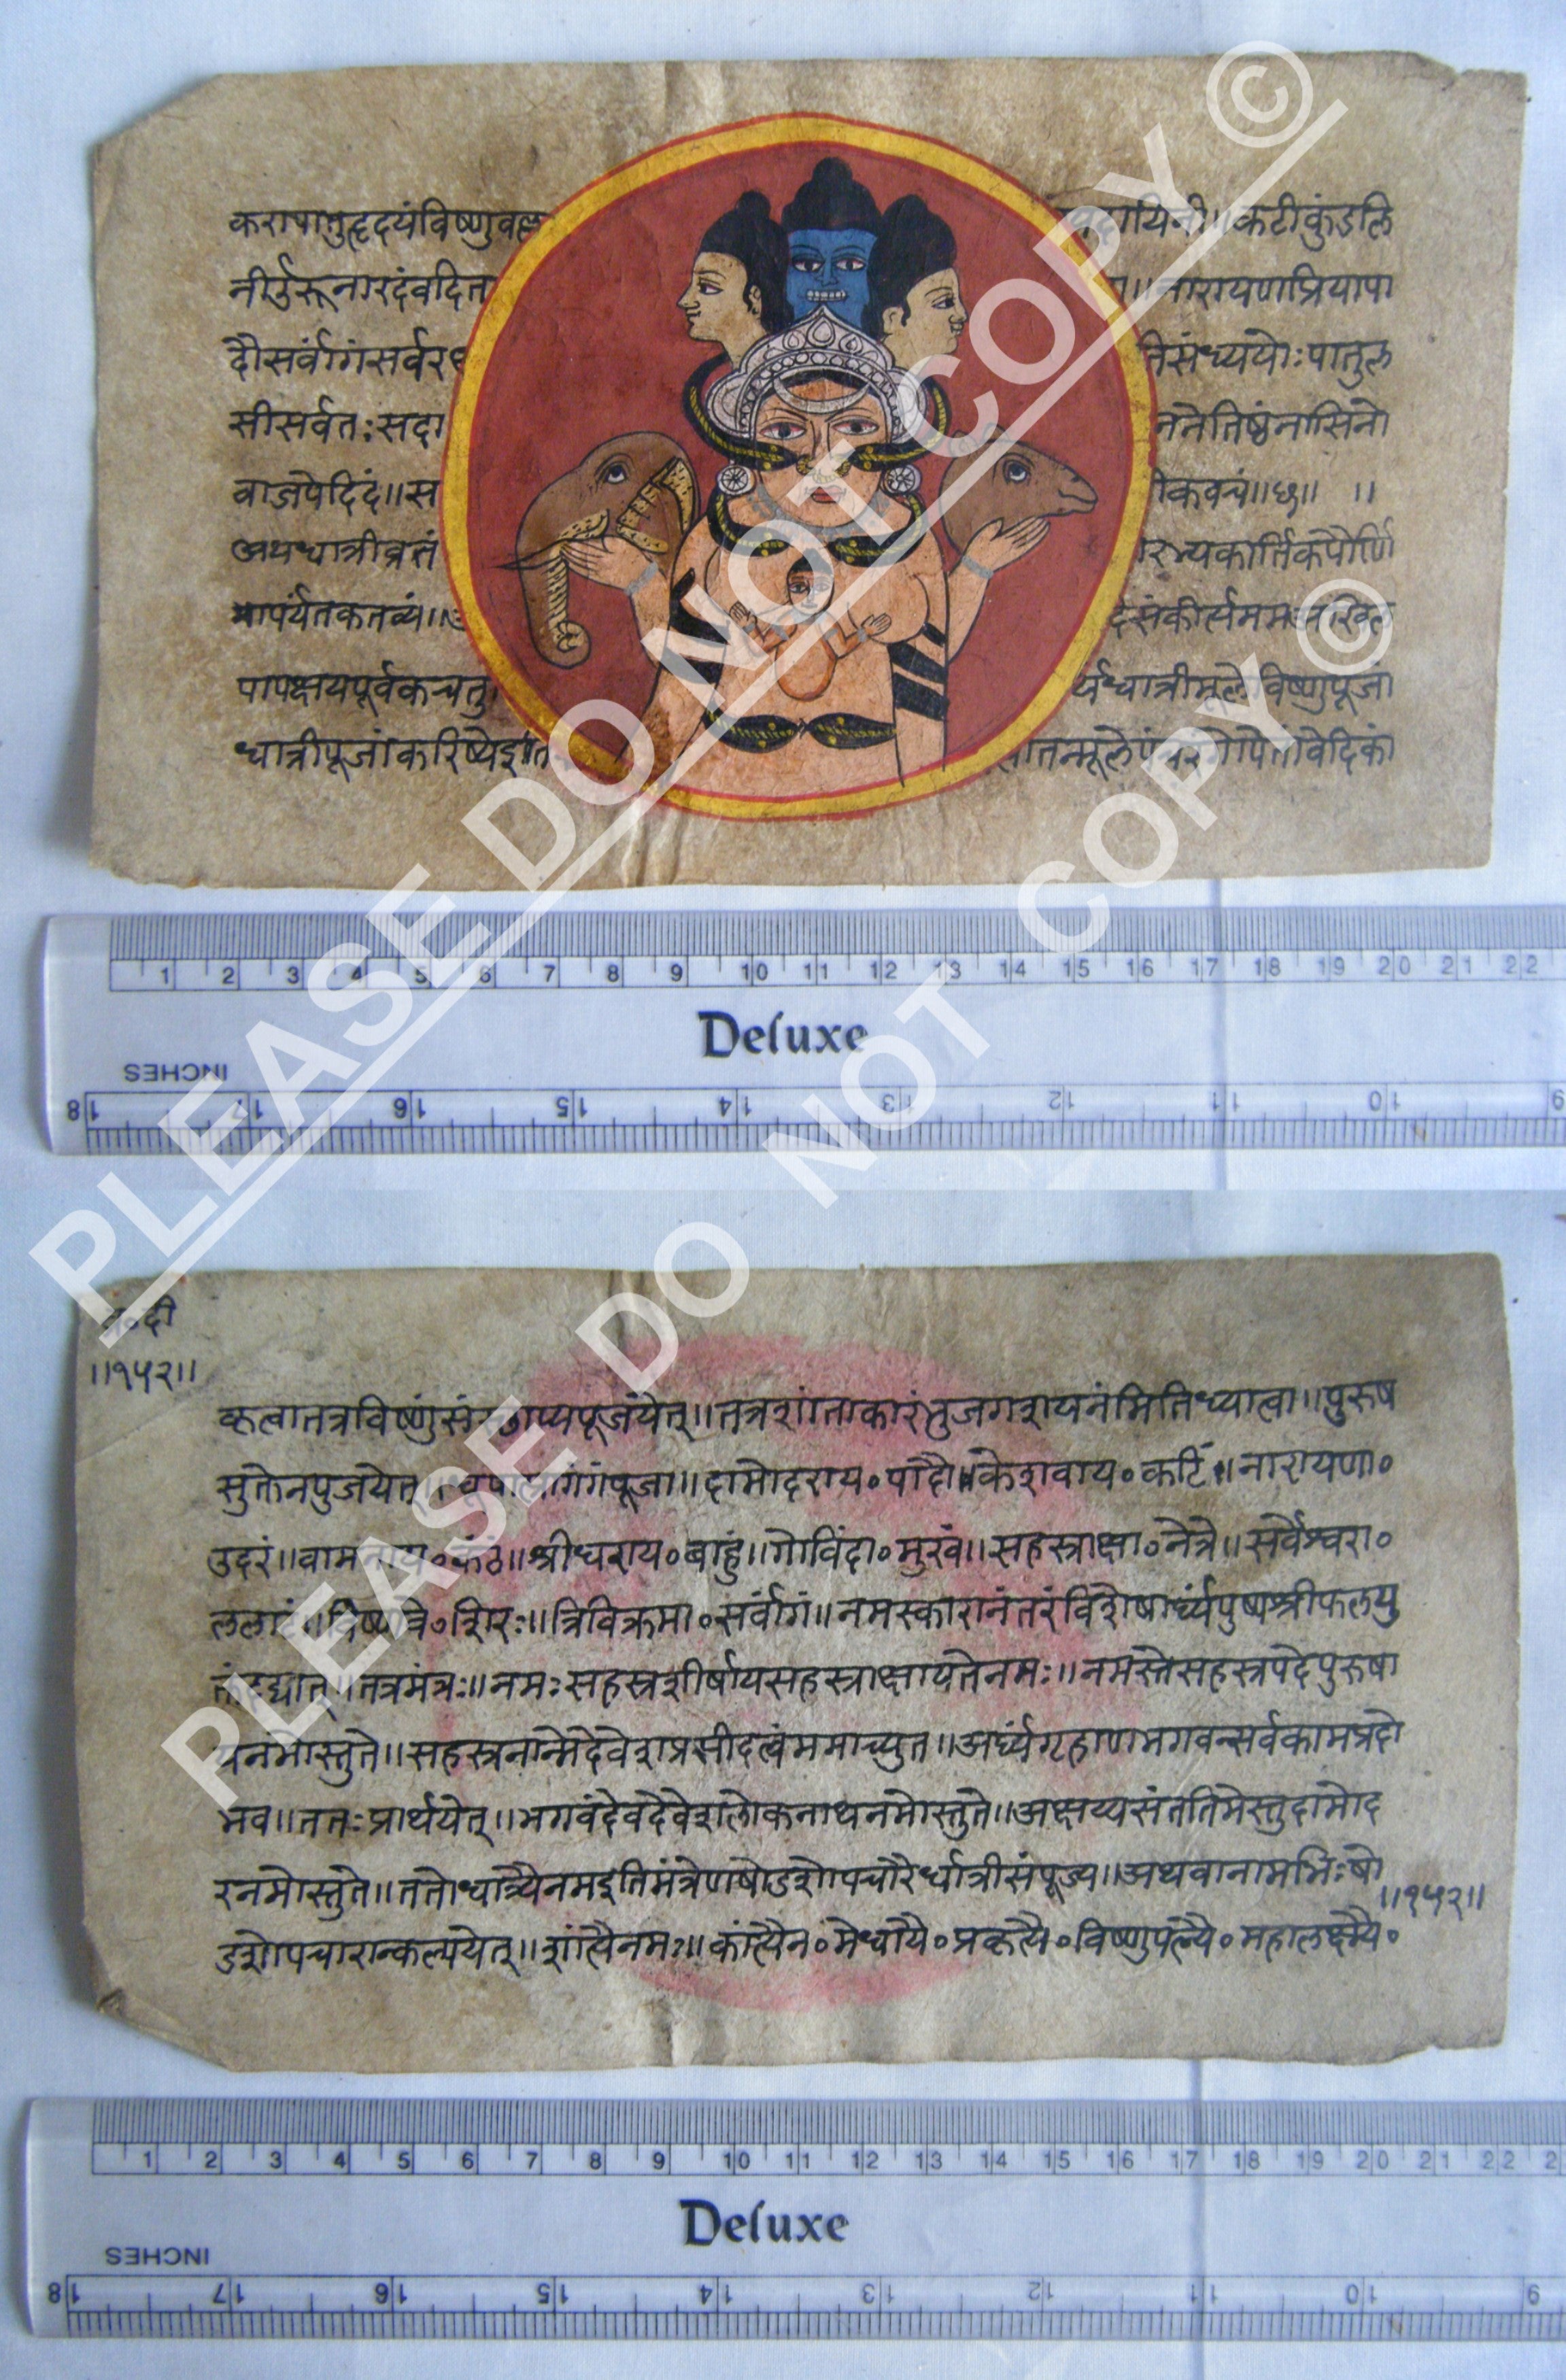 करापातुहृदयंविष्णुवल्ल यिनी॥कटीकुंडलि
नीर्उरूनारदंवदिता ॥नारायणप्रियापा
दौसर्वांगंसर्वर तिसंध्ययोःपातुल
सीसर्वतःसदा ननेतिष्ठंनासिनो
वाजपेदिदं॥स कवचं॥छ॥ ॥
अथधात्रीव्रतं रभ्यकार्तिकपौर्णि
मापर्यंतकतव्यं॥ संकीर्त्यमम
पापक्षयपूर्वकचतु धात्रीमूलेविष्णुपूजां
धात्रीपूजांकरिष्येइति तन्मूले वेदिकां
1 2 3 4 5 6 7 8 9 10 11 12 13 14 15 16 17 18 19 20 21 22
Deluxe
INCHES
18 17 16 15 14 13 12 11 10 9
॥१५२॥
कृत्वातत्रविष्णुंसंस्थाप्यपूजयेत्॥तत्रशांताकारंभुजगशयनंमितिध्यात्वा॥पुरुष
सुक्तेनपुजयेत् पूजा॥दामोदराय॰पादौ॥केशवाय॰कटिं॥नारायणा॰
उदरं॥वामनाय॰कंठं॥श्रीधराय॰बाहुं॥गोविंदा॰मुखं॥सहस्त्राक्षा॰नेत्रे॥सर्वेश्वरा॰
ललाटं॥विष्णवे॰शिरः॥त्रिविक्रमा॰सर्वांगं॥नमस्कारानंतरंविशेषार्घ्यंपुष्पश्रीफलयु
तंदद्यात्॥तत्रमंत्रः॥नमःसहस्त्रशीर्षायसहस्त्राक्षायतेनमः॥नमस्तेसहस्त्रपदेपुरुषा
यनमोस्तुते॥सहस्त्रनाम्नेदेवेशप्रसीदत्वंममाच्युत॥अर्घ्यंगृहाणभगवन्सर्वकामप्रदो
भव॥ततःप्रार्थयेत्॥भगवंदेवदेवेशलोकनाथनमोस्तुते॥अक्षय्यसंततिमेस्तुदामोद
रनमोस्तुते॥ततोधात्र्यैनमइतिमंत्रेणषोडशोपचारैर्धात्रीसंपूज्य॥अथवानामभिःषो
॥१५२॥
डशोपचारान्कल्पयेत्॥शांत्यैनमः॥कांत्यैन॰मेधायै॰प्रकृत्यै॰विष्णुपत्न्यै॰महालक्ष्म्यै॰
1 2 3 4 5 6 7 8 9 10 11 12 13 14 15 16 17 18 19 20 21 22
Deluxe
INCHES
18 17 16 15 14 13 12 11 10 9
PLEASE DO NOT COPY ©
PLEASE DO NOT COPY ©